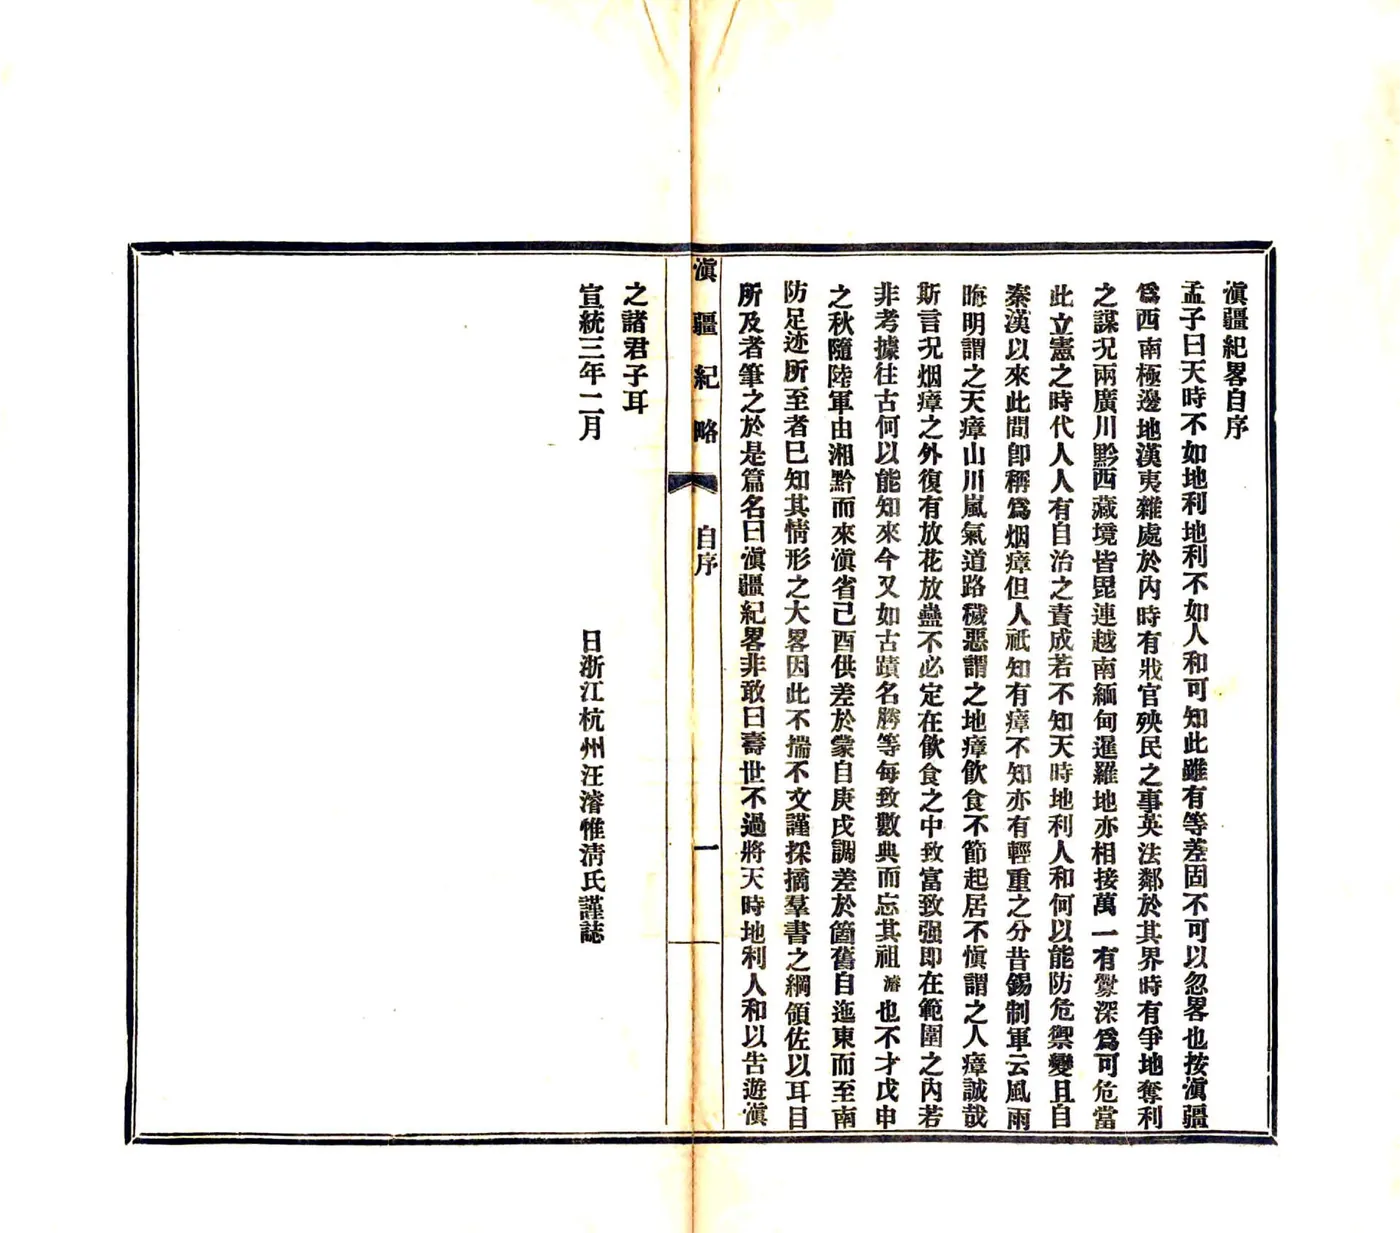 滇疆紀畧自序
孟子曰天時不如地利地利不如人和可知此雖有等差固不可以忽畧也按滇疆
爲西南極邊地漢夷雜處於內時有戕官殃民之事英法鄰於其界時有爭地奪利
之謀况兩廣川黔西藏境皆毘連越南緬甸暹羅地亦相接萬一有釁深爲可危當
此立憲之時代人人有自治之責成若不知天時地利人和何以能防危禦變且自
秦漢以來此間卽稱爲烟瘴但人祇知有瘴不知亦有輕重之分昔錫制軍云風雨
晦明謂之天瘴山川嵐氣道路穢惡謂之地瘴飲食不節起居不愼謂之人瘴誠哉
斯言况烟瘴之外復有放花放蠱不必定在飲食之中致富致强即在範圍之內若
非考據往古何以能知來今又如古蹟名勝等每致數典而忘其祖濬也不才戊申
之秋隨陸軍由湘黔而來滇省己酉供差於蒙自庚戌調差於箇舊自迤東而至南
防足迹所至者已知其情形之大畧因此不揣不文謹採摘羣書之綱領佐以耳目
所及者筆之於是篇名曰滇疆紀畧非敢曰壽世不過將天時地利人和以告遊滇
之諸君子耳
宣統三年二月 日浙江杭州汪濬惟清氏謹誌
滇疆紀略 自序 一